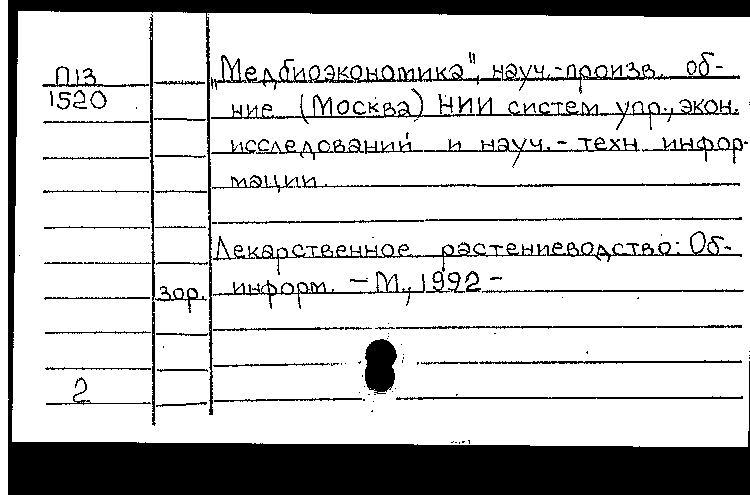 П13
1520
"Медбиоэкономика", науч.-произв. об-
ние (Москва) НИИ систем упр., экон.
исследований и науч.- техн. инфор-
мации.
Лекарственное растениеводство: Об-
зор. информ. – М., 1992 –
2